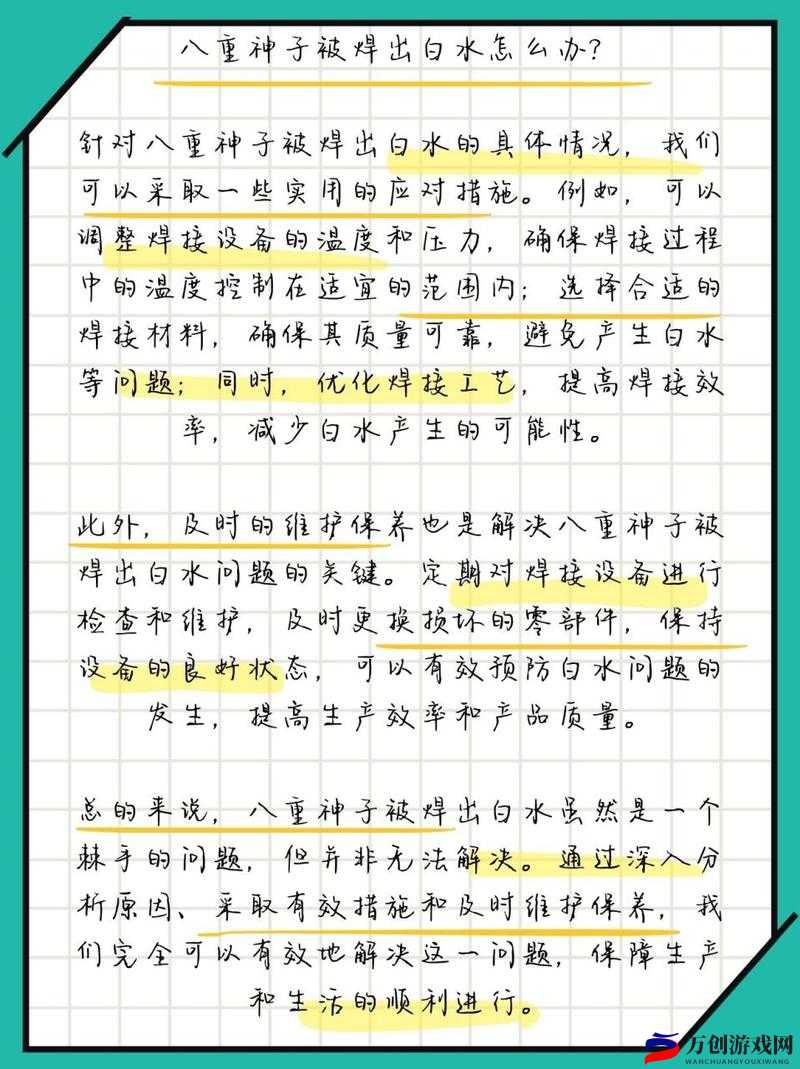 八重神子被焊出白水怎么办？
针对八重神子被焊出白水的具体情况，我们
可以采取一些实用的应对措施。例如，可以
调整焊接设备的温度和压力，确保焊接过程
中的温度控制在适宜的范围内；选择合适的
焊接材料，确保其质量可靠，避免产生白水
等问题；同时，优化焊接工艺，提高焊接效
率，减少白水产生的可能性。
此外，及时的维护保养也是解决八重神子被
焊出白水问题的关键。定期对焊接设备进行
检查和维护，及时更换损坏的零部件，保持
设备的良好状态，可以有效预防白水问题的
发生，提高生产效率和产品质量。
总的来说，八重神子被焊出白水虽然是一个
棘手的问题，但并非无法解决。通过深入分
析原因、采取有效措施和及时维护保养，我
们完全可以有效地解决这一问题，保障生产
和生活的顺利进行。
万创游戏网
WANCHUANGYOUXIWANG